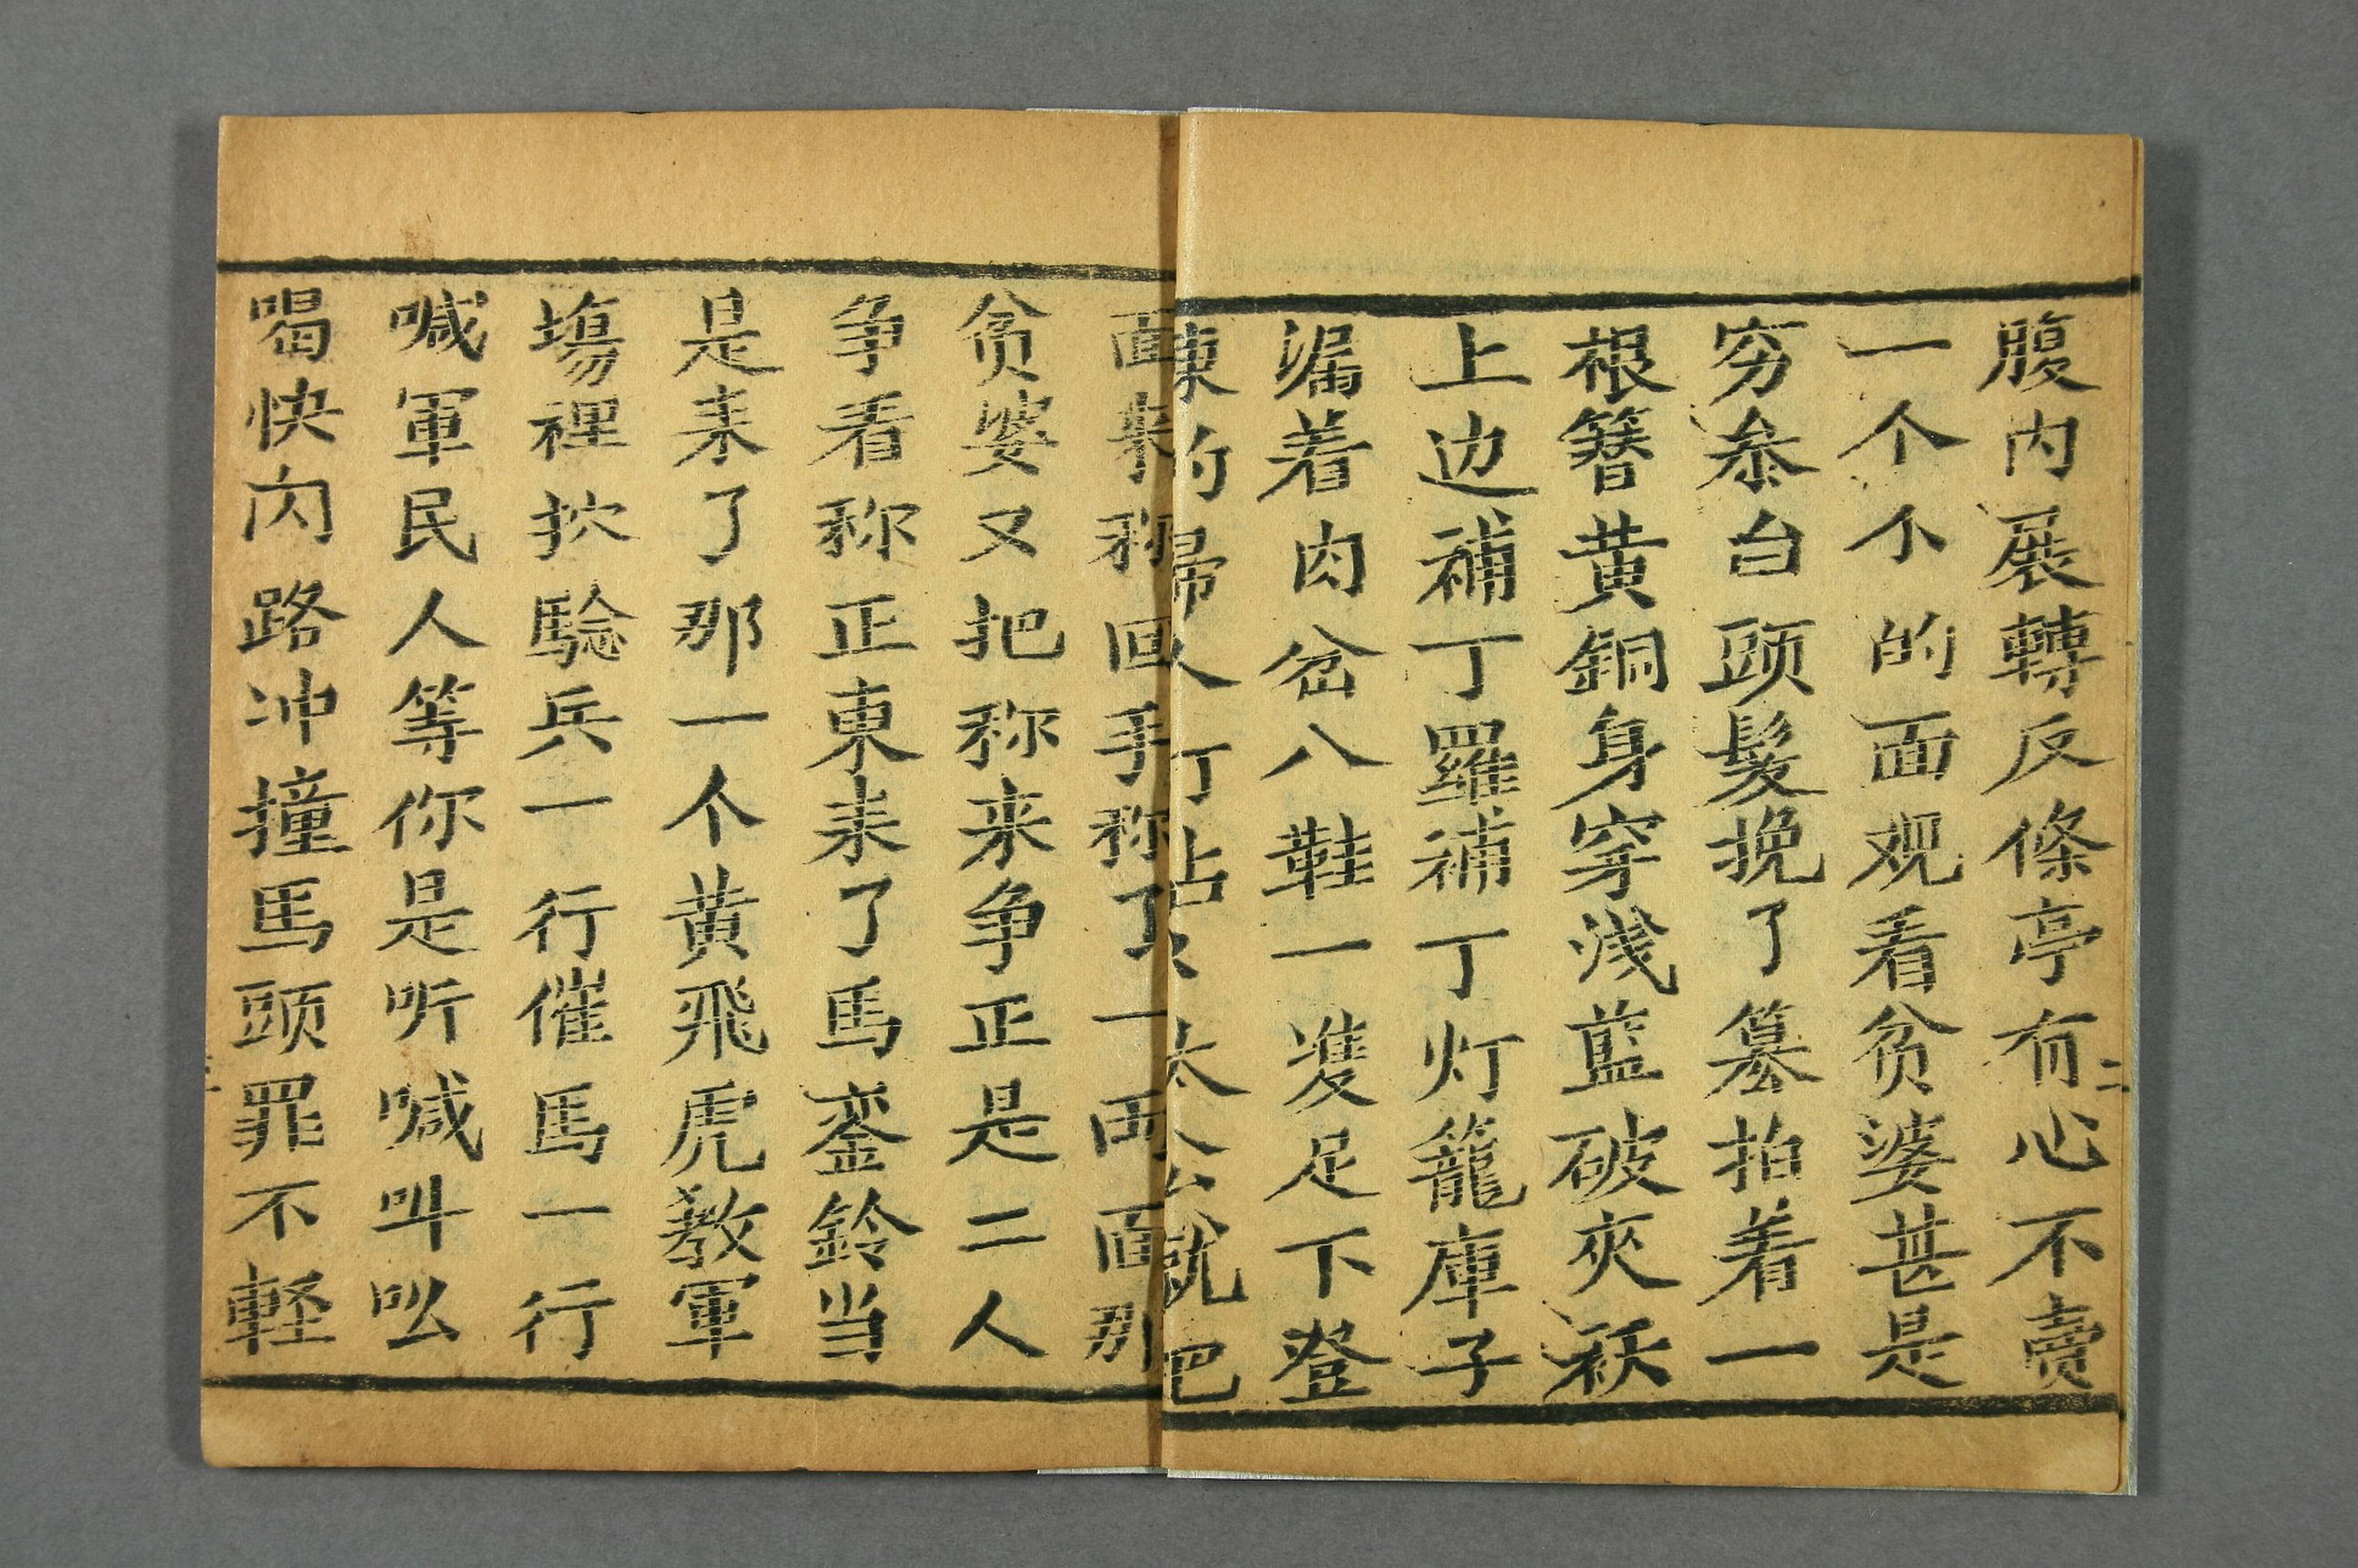 腹内展轉反條亭有心不賣
一个个的面观看贫婆甚是
穷叅白头髮挽了篡拍着一
根簪黄銅身穿浅藍破夾袄
上边補丁羅補丁灯籠庫子
漏着肉岔八鞋一双足下登
東的歸人丁占太公就把
面来称回手称了一両面那
贫婆又把称来争正是二人
争看称正東耒了馬銮鈴当
是耒了那一个黄飛虎教軍
塲裡扻騐兵一行催馬一行
喊軍民人等你是听喊叫吆
喝快闪路冲撞馬头罪不軽
二